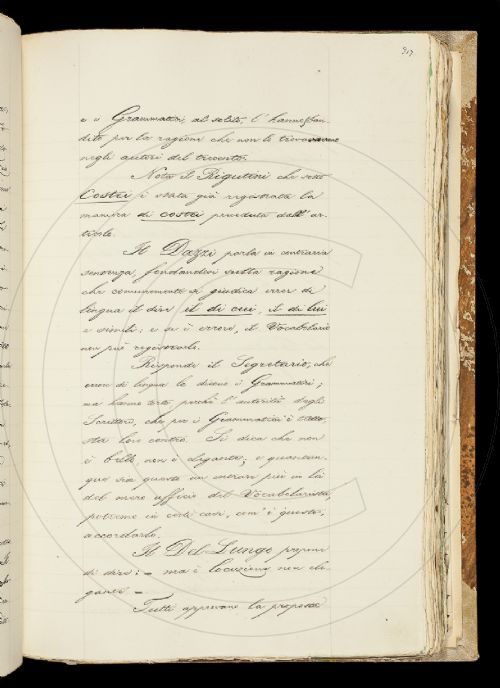 317
e i Grammatici, al solito, l'hanno ban-
dito per la ragione che non lo trovavano
negli autori del trecento.
Nota il Rigutini che sotto
Costui è stata già registrata la
maniera di costui preceduta dall'ar-
ticolo.
Il Dazzi parla in contraria
sentenza, fondandosi sulla ragione
che comunemente si giudica error di
lingua il dire il di cui, il di lui
e simili: e se è errore, il Vocabolario
non può registrarlo.
Risponde il Segretario, che
error di lingua lo dicono i Grammatici;
ma hanno torto, perchè l'autorità degli
Scrittori, che per i Grammatici è tutto,
sta loro contro. Si dica che non
è bello, non è elegante; e quantun-
que sia questo un entrare più in là
del mero ufficio del Vocabolarista,
potremo in certi casi, com'è questo,
accordarlo.
Il Del Lungo propone
di dire: – ma è locuzione non ele-
gante –
Tutti approvano la proposta